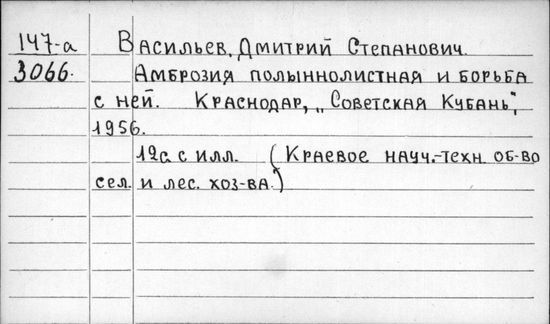 147-а Васильев, Дмитрий Степанович.
3066. Амброзия полыннолистная и борьба
с ней. Краснодар, „Советская Кубань",
1956.
12с. с илл. (Краевое науч.-техн. об-во
сел. и лес. хоз-ва.)